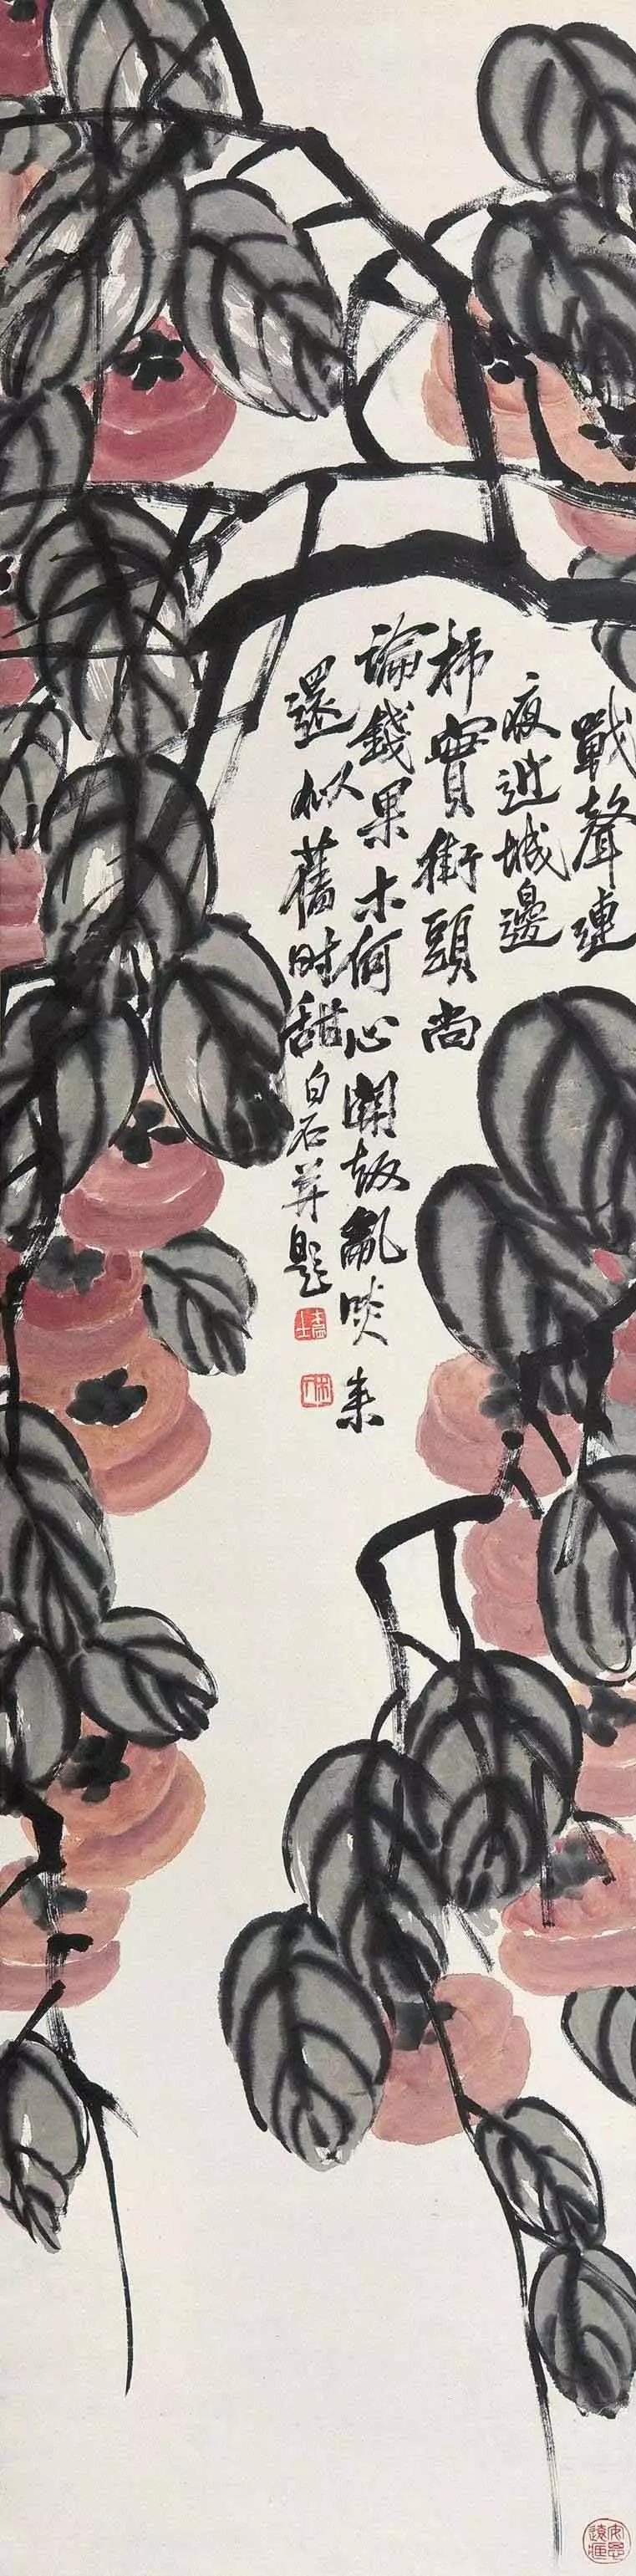 戰聲連
夜近城邊
柿實街頭尚
論錢果木何心亂啖來
還似舊時甜白石并題
木居士
木人